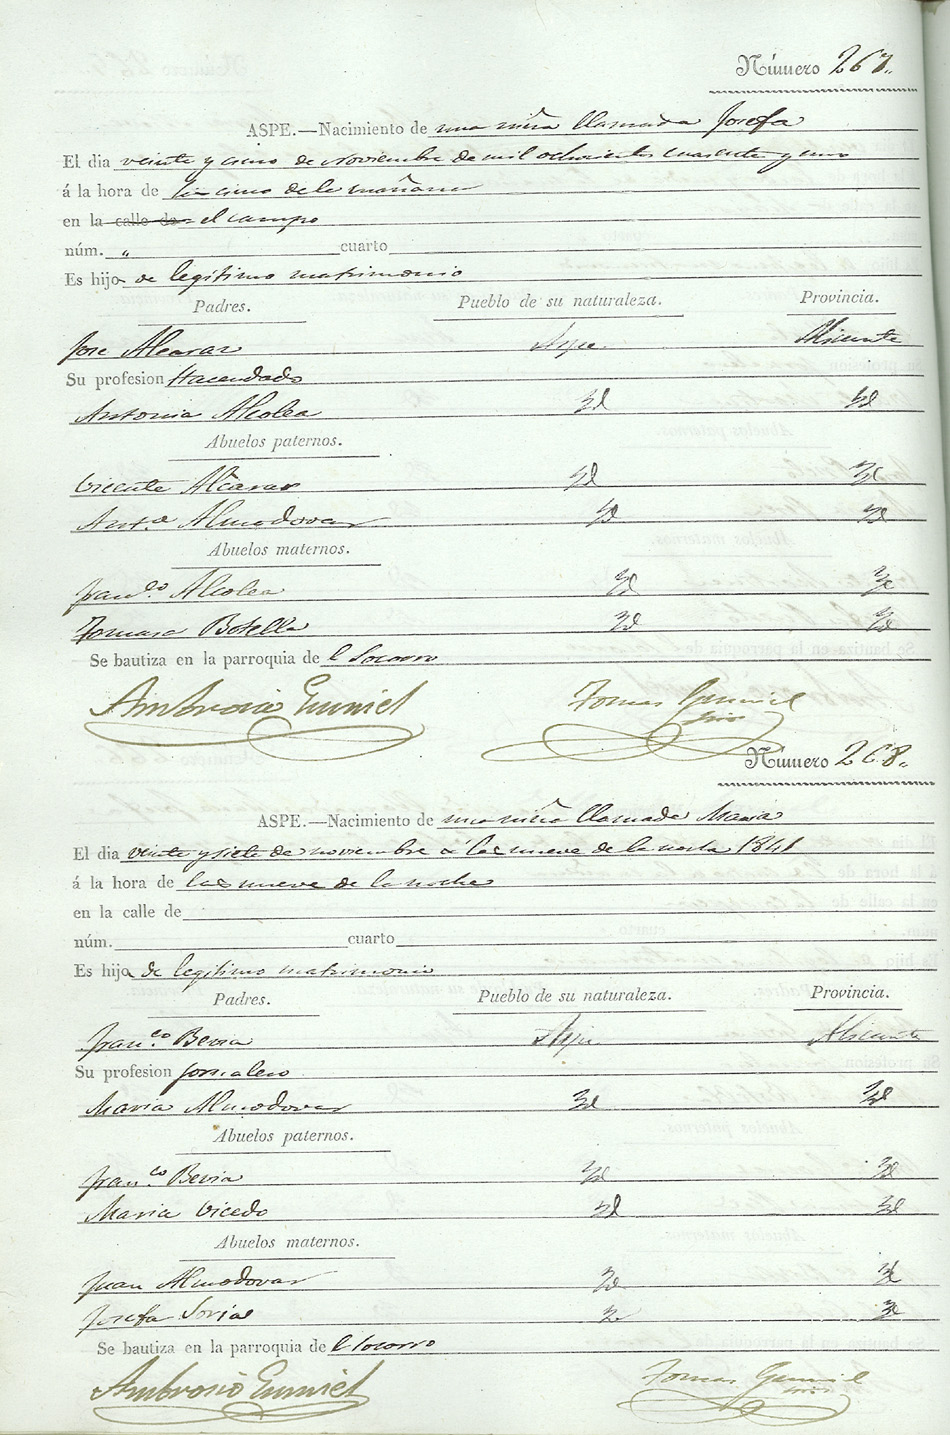 Número 267.
ASPE.—Nacimiento de una niña llamada Josefa
El dia veinte y cinco de Noviembre de mil ochocientos cuarenta y uno
á la hora de las cinco de la mañana
en la calle de el campo
núm. " cuarto
Es hija de legitimo matrimonio
Padres. Pueblo de su naturaleza. Provincia.
Jose Alcaraz Aspe Alicante
Su profesion Hacendado
Antonia Alcolea Yd Yd
Abuelos paternos.
Vicente Alcaraz Yd Yd
Anta Almodovar Yd Yd
Abuelos maternos.
Franco Alcolea Yd Yd
Tomasa Botella Yd Yd
Se bautiza en la parroquia del Socorro
Ambrosio Tomas
Número 268.
ASPE.—Nacimiento de una niña llamada Maria
El dia veinte y siete de noviembre a las nueve de la noche 1841
á la hora de las nueve de la noche
en la calle de
núm. cuarto
Es hija de legitimo matrimonio
Padres. Pueblo de su naturaleza. Provincia.
Franco Bevia Aspe Alicante
Su profesion jornalero
Maria Almodovar Yd Yd
Abuelos paternos.
Franco Bevia Yd Yd
Maria Vicedo Yd Yd
Abuelos maternos.
Juan Almodovar Yd Yd
Josefa Soria Yd Yd
Se bautiza en la parroquia del Socorro
Ambrosio Tomas